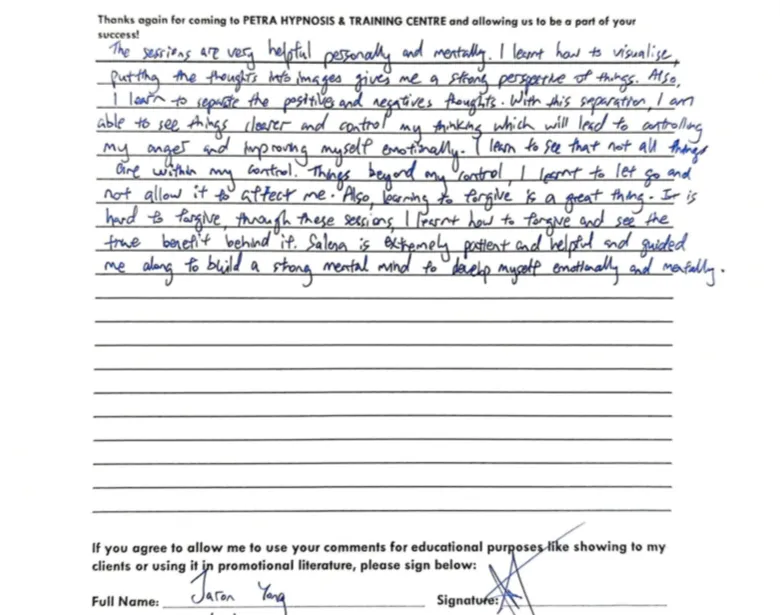 Thanks again for coming to PETRA HYPNOSIS & TRAINING CENTRE and allowing us to be a part of your
success!
The sessions are very helpful personally and mentally. I learnt how to visualise,
putting the thoughts into images gives me a strong perspective of things. Also,
I learn to separate the positives and negatives thoughts. With this separation, I am
able to see things clearer and control my thinking which will lead to controlling
my anger and improving myself emotinally. I learn to see that not all things
are within my control. Things beyond my control, I learnt to let go and
not allow it to affect me. Also, learning to forgive is a great thing. It is
hard to forgive, through these sessions, I learnt how to forgive and see the
true benefit behind it. Salena is extremely patient and helpful and guided
me along to build a strong mental mind to develop myself emotionally and mentally.
If you agree to allow me to use your comments for educational purposes like showing to my
clients or using it in promotional literature, please sign below:
Full Name: Jaron Yang Signature: